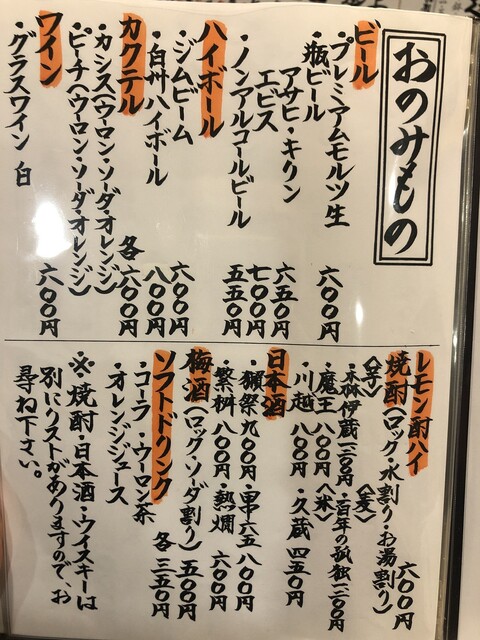 おのみもの
ビール
・プレミアムモルツ生 六〇〇円
・瓶ビール
アサヒ・キリン 六五〇円
エビス 七〇〇円
・ノンアルコールビール 五五〇円
ハイボール
・ジムビーム 六〇〇円
・白州ハイボール 八〇〇円
カクテル
・カシス(ウーロン・ソーダ・オレンジ)
・ピーチ(ウーロン・ソーダ・オレンジ)
各六〇〇円
ワイン
・グラスワイン 白 六〇〇円
レモン酎ハイ 六〇〇円
焼酎(ロック・水割り・お湯割り)
〈芋〉 〈麦〉
・森伊蔵 ・百年の孤独
・魔王 八〇〇円 〈米〉
・川越 八〇〇円 ・久蔵 四五〇円
日本酒
・獺祭 九〇〇円 ・串六五 八〇〇円
・繁桝 八〇〇円 ・熱燗 六〇〇円
梅酒(ロック・ソーダ割り) 五〇〇円
ソフトドリンク
・コーラ・ウーロン茶
・オレンジジュース
各三五〇円
・※焼酎・日本酒・ウイスキーは
別にリストがありますので、お
尋ね下さい。